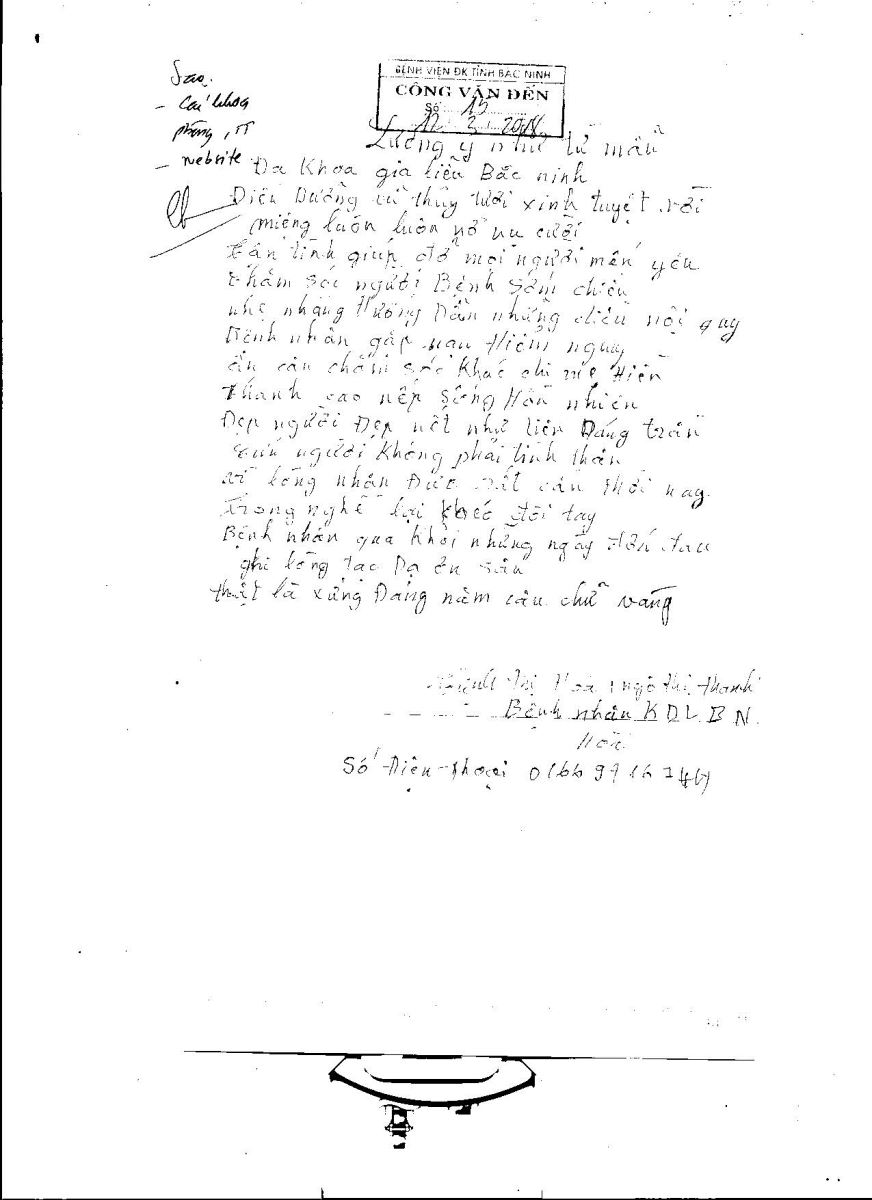 Sao.
- Các khoa
phòng, TT
- website
BỆNH VIỆN ĐK TỈNH BẮC NINH
CÔNG VĂN ĐẾN
Số 15
12 3 2018
Lương y như từ mẫu
Đa Khoa gia liễu Bắc ninh
Điều Dưỡng cử thủy tươi xinh tuyệt vời
miệng luôn luôn nở nụ cười
tận tình giúp đỡ mọi người mến yêu
thăm sóc người Bệnh sớm chiều
nhẹ nhàng Hướng Dẫn những điều nội quy
Bệnh nhân gặp Hiểm nguy
ân cần chăm sóc Khác chi mẹ Hiền
thanh cao nếp sống Hồn nhiên
Đẹp người Đẹp nết như tiên Dáng trần
người Không phải tinh thần
lòng nhân Đức rất cần thời nay
trong nghề lại Khéo đôi tay
Bệnh nhân qua Khỏi những ngày đớn đau
ghi lòng tạc Dạ ơn sâu
thật là xứng Đáng năm câu chữ vàng
Thị Hoà ngô thị thanh
Bệnh nhân K D L B N.
Hoà
Số Điện thoại